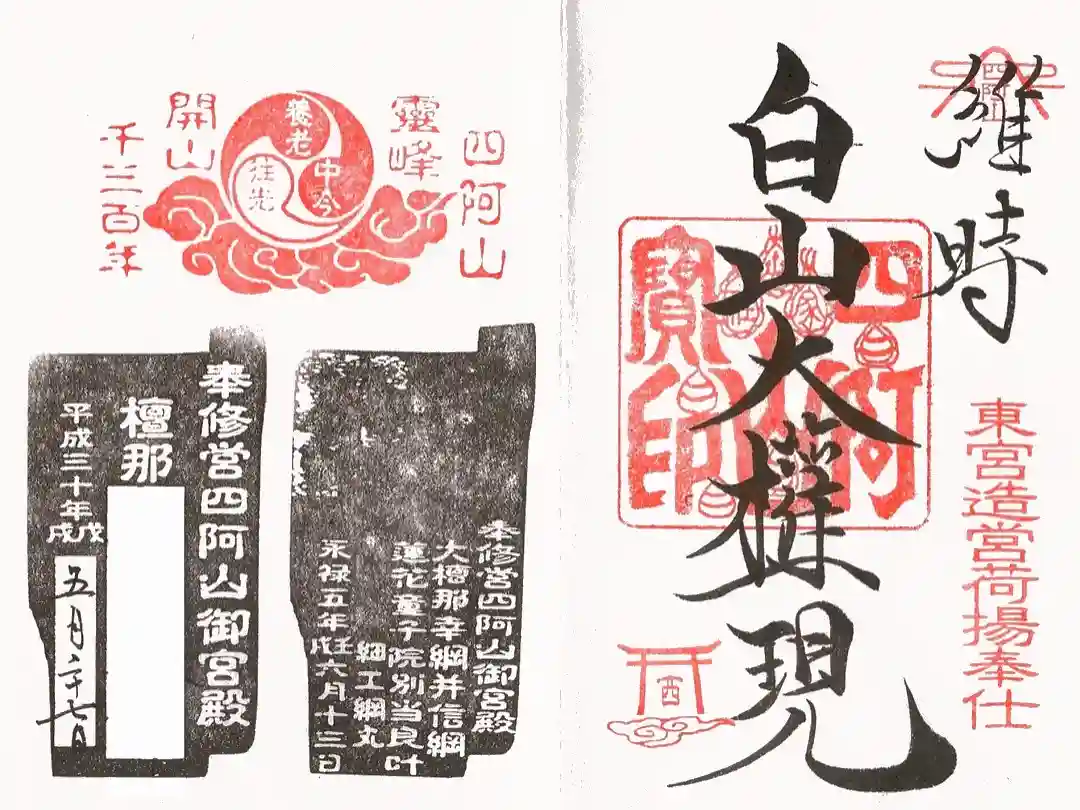 四阿山
維時
東宮造營荷揚奉仕
白山大權現
四阿山
寶印
西
四阿山
靈峰
養老
中今
往光
開山
千三百年
奉修営四阿山御宮殿
大檀那幸綱并信綱
蓮花童子院別当良叶
細工綱丸
永禄五年壬戌六月十三日
奉修営四阿山御宮殿
檀那
平成三十年戊戌
五月二十七日